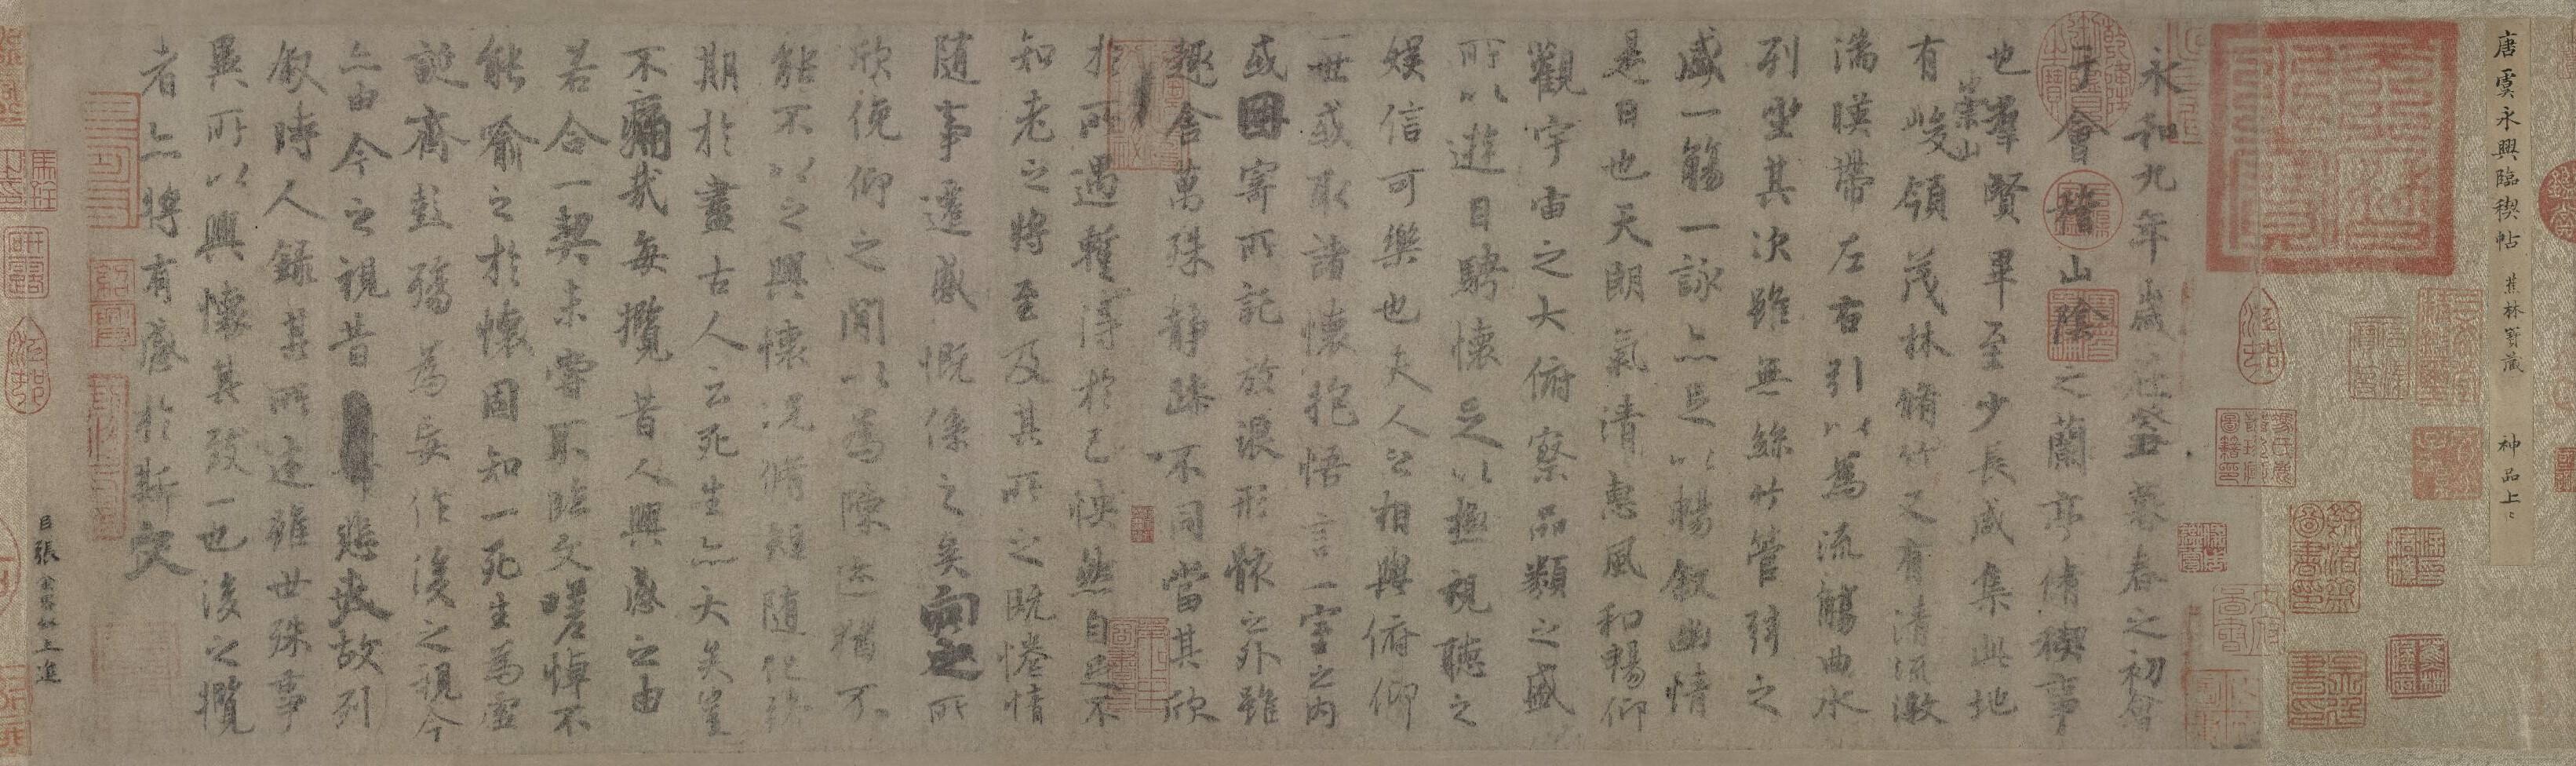 唐虞永興臨禊帖 蕉林寶藏 神品上上
永和九年歲在癸丑暮春之初會
于會稽山陰之蘭亭脩禊事
也羣賢畢至少長咸集此地
有崇山峻領茂林脩竹又有清流激
湍暎帶左右引以為流觴曲水
列坐其次雖無絲竹管弦之
盛一觴一詠亦足以暢敘幽情
是日也天朗氣清惠風和暢仰
觀宇宙之大俯察品類之盛
所以遊目騁懷足以極視聽之
娛信可樂也夫人之相與俯仰
一世或取諸懷抱悟言一室之內
或因寄所託放浪形骸之外雖
趣舍萬殊靜躁不同當其欣
於所遇暫得於己怏然自足不
知老之將至及其所之既惓情
隨事遷感慨係之矣向之所
欣俛仰之間以為陳迹猶不
能不以之興懷況脩短隨化終
期於盡古人云死生亦大矣豈
不痛哉每攬昔人興感之由
若合一契未嘗不臨文嗟悼不
能喻之於懷固知一死生為虛
誕齊彭殤為妄作後之視今
亦由今之視昔悲夫故列
敘時人錄其所述雖世殊事
異所以興懷其致一也後之攬
者亦將有感於斯文
臣張金界奴上進